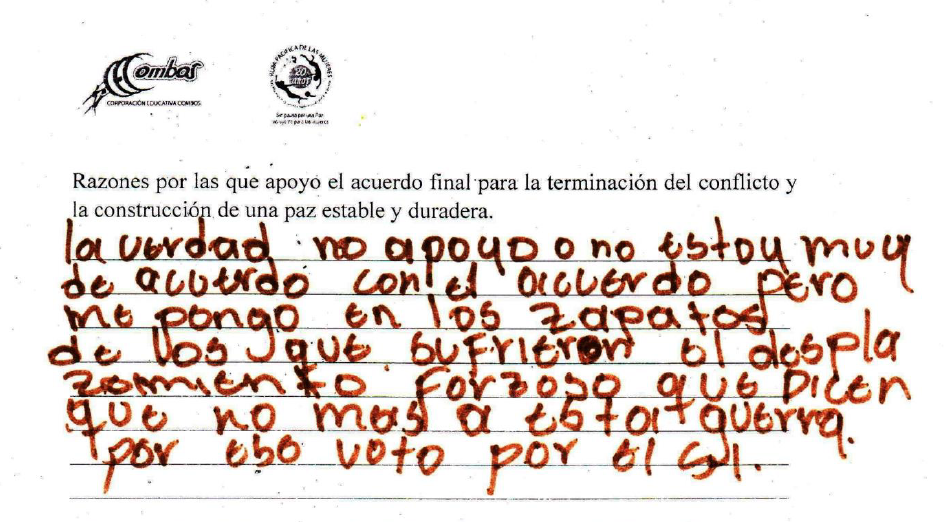 Combos
CORPORACIÓN EDUCATIVA COMBOS
RUTA PACIFICA DE LAS MUJERES
20 AÑOS
Razones por las que apoyo el acuerdo final para la terminación del conflicto y
la construcción de una paz estable y duradera.
la verdad no apoyo o no estoy muy
de acuerdo con el acuerdo pero
me pongo en los zapatos
de los que sufrieron el despla
zamiento forzoso que Dicen
que no mas a esta guerra.
por eso voto por el si.